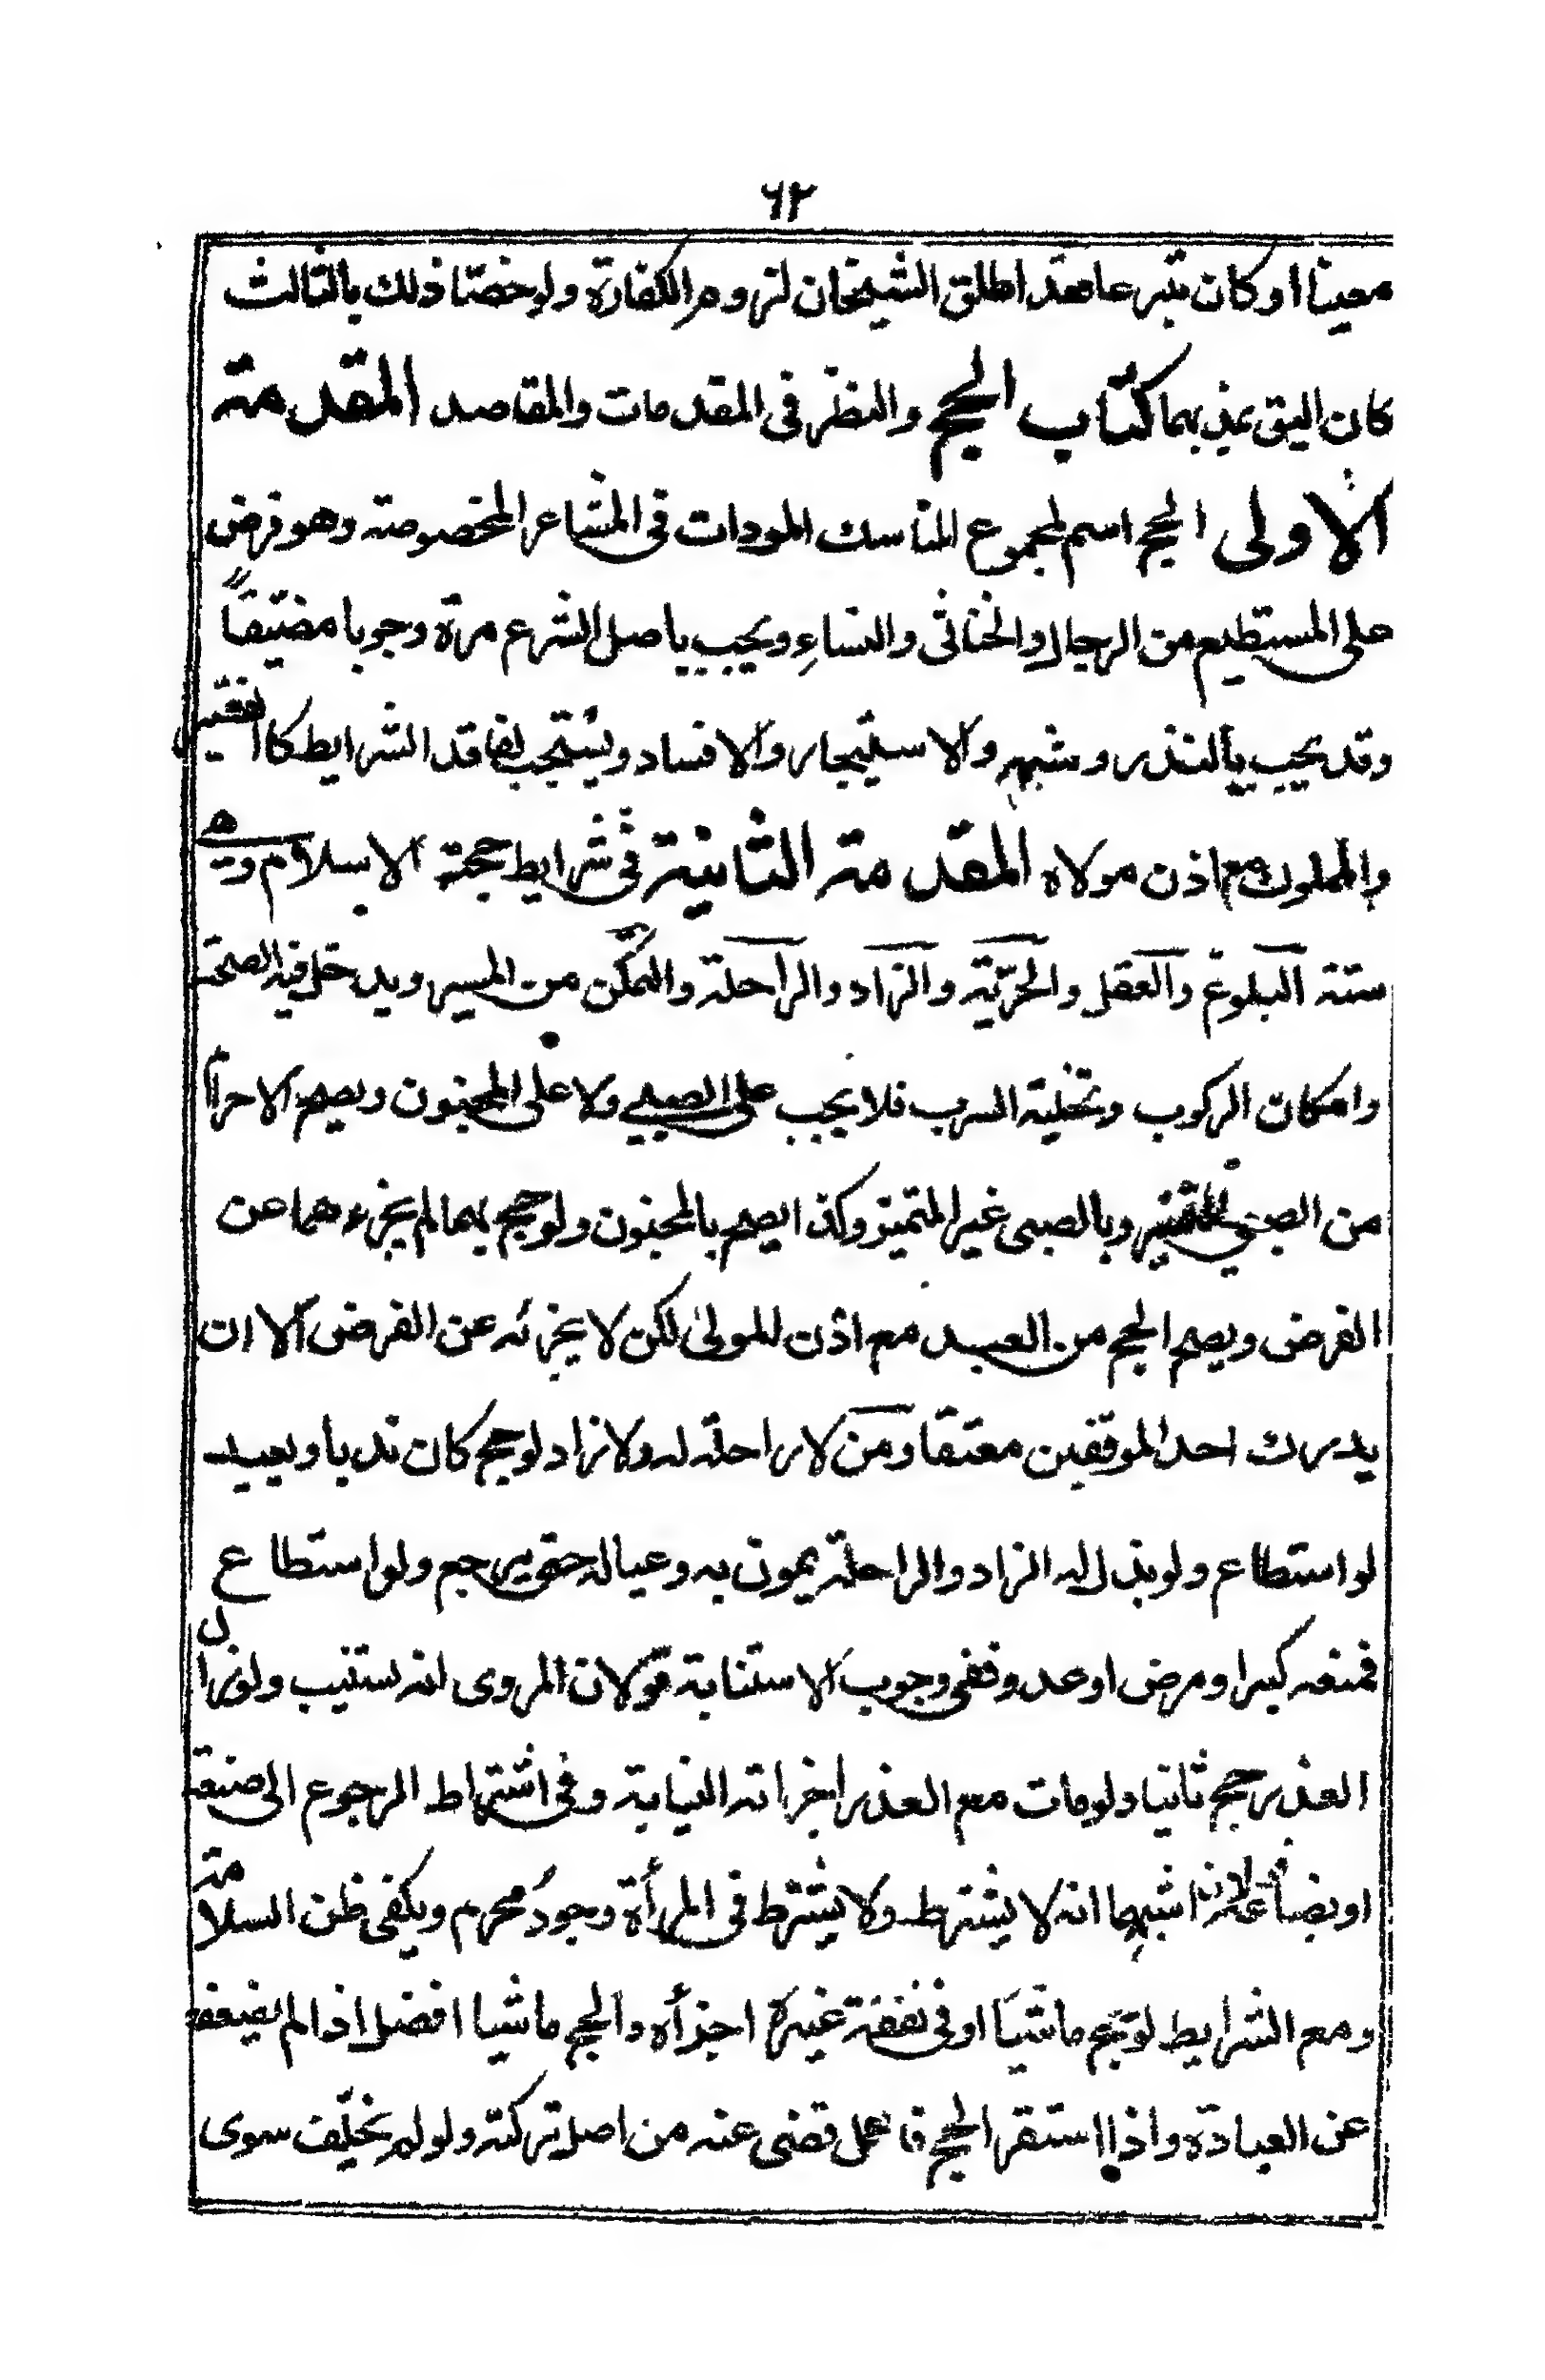 ٦٢
معينا او كان تبرعا فقد اطلق الشيخان لزوم الكفارة ولو خصّا ذلك بالثالث
كان اليق بمذهبهما كتاب الحج والنظر في المقدمات والمقاصد المقدمة
الاولى الحج اسم لمجموع المناسك المودات في المشاعر المخصوصة وهو فرض
على المستطيع من الرجال والخناثى والنساء ويجب باصل الشرع مرة وجوبا مضيّقاً
وقد يجب بالنذر وشبهه والاستيجار والافساد ويستحب لفاقد الشرايط كالفقير
والمملوك مع اذن مولاه المقدمة الثانية في شرايط حجة الاسلام وهي
ستة البلوغ والعقل والحرّيّة والزاد والراحلة والتمكّن من المسير ويدخل فيه الصحة
وامكان الركوب وتخلية السرب فلا يجب على الصبي ولا على المجنون ويصح الاحرام
من الصبي المميز وبالصبي غير المتميز وكذا يصح بالمجنون ولو حج بهما لم يجزءهما عن
الفرض ويصح الحج من العبد مع اذن المولى لكن لا يجزئه عن الفرض الا ان
يدرك احد الموقفين معتقا ومن لا راحلة له ولا زاد لو حج كان ندبا ويعيد
لو استطاع ولو بذل له الزاد والراحلة يمون به وعياله حتى يرجع ولو استطاع
فمنعه كبر او مرض او عدو ففي وجوب الاستنابة قولان المروى انه يستنيب ولو زال
العذر حج ثانيا ولو مات مع العذر اجزاته النيابة وفي اشتراط الرجوع الى صنعة
او بضاعة قولان اشبههما انه لا يشترط ولا يشترط في المرأة وجود محرم ويكفى ظن السلامة
ومع الشرايط لو حج ماشيا او في نفقة غيره اجزأه والحج ماشيا افضل اذا لم يضعفه
عن العبادة واذا استقر الحج فاهمل قضى عنه من اصل تركته ولو لم يخلّف سوى